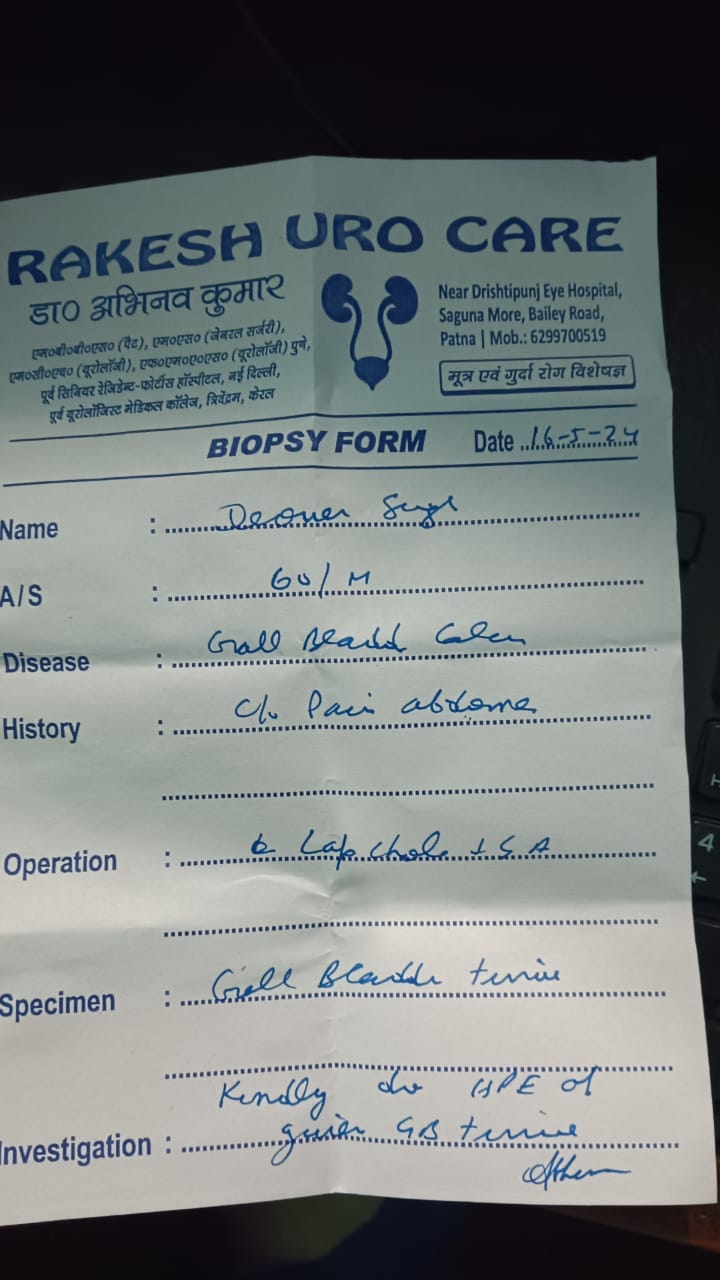 RAKESH URO CARE
डा० अभिनव कुमार
एम०बी०बी०एस० (पैट), एम०एस० (जेनरल सर्जरी),
एम०सी०एच० (यूरोलॉजी), एफ०एम०ए०एस० (यूरोलॉजी) पुणे,
पूर्व सिनियर रेजिडेन्ट-फोर्टीस हॉस्पीटल, नई दिल्ली,
पूर्व यूरोलॉजिस्ट मेडिकल कॉलेज, त्रिवेंद्रम, केरल
Near Drishtipunj Eye Hospital,
Saguna More, Bailey Road,
Patna | Mob.: 6299700519
मूत्र एवं गुर्दा रोग विशेषज्ञ
BIOPSY FORM Date 16-5-24
Name :
A/S : 60/M
Disease : Gall Bladd
History : c/o Pain abdome
Operation : Lap chole
Specimen : Gall Bladde
Kindly do HPE of
Investigation : GB